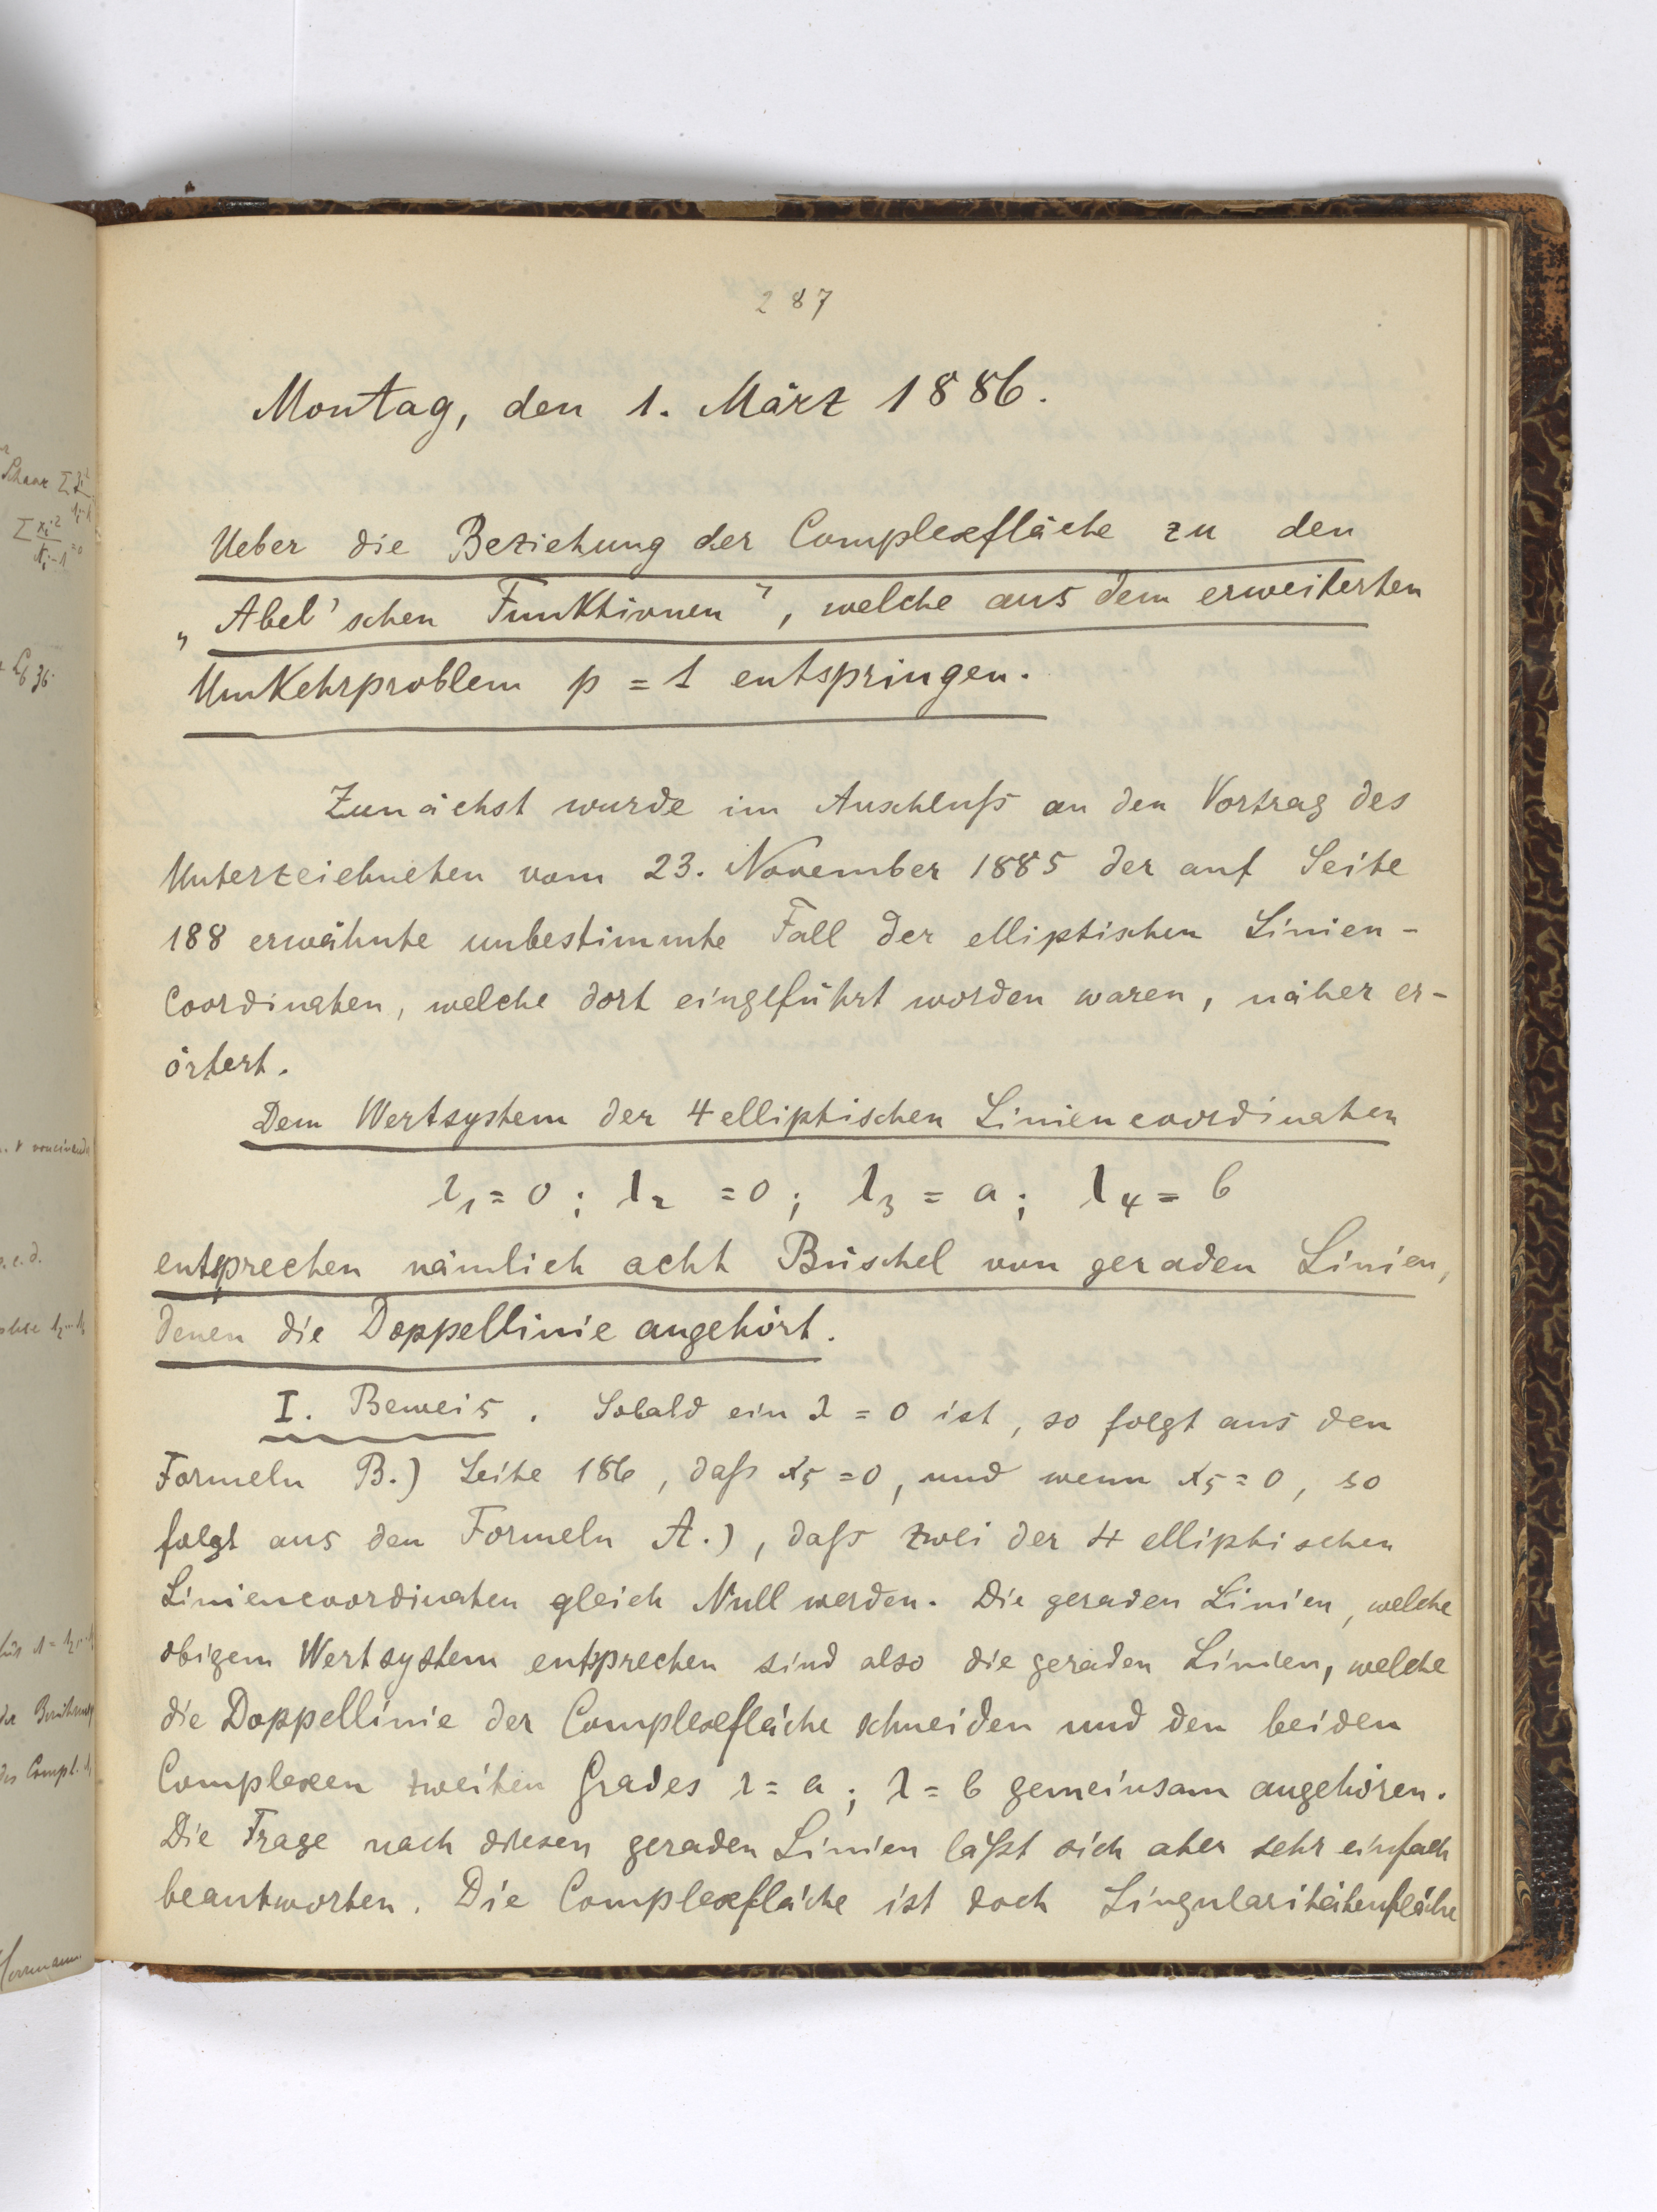 287
Montag, den 1. März 1886.
Ueber die Beziehung der Complexfläche zu den
„Abel'schen Funktionen", welche aus dem erweiterten
Umkehrproblem p = 1 entspringen.
Zunächst wurde im Anschluß an den Vortrag des
Unterzeichneten vom 23. November 1885 der auf Seite
188 erwähnte unbestimmte Fall der elliptischen Linien-
Coordinaten, welche dort eingeführt worden waren, näher er-
örtert.
Dem Wertsystem der 4 elliptischen Liniencoordinaten
λ₁ = 0 ; λ₂ = 0 ; λ₃ = a ; λ₄ = b
entsprechen nämlich acht Büschel von geraden Linien,
denen die Doppellinie angehört.
I. Beweis. Sobald ein λ = 0 ist, so folgt aus den
Formeln B.) Seite 186, daß x₅ = 0, und wenn x₅ = 0, so
folgt aus den Formeln A.), daß zwei der 4 elliptischen
Liniencoordinaten gleich Null werden. Die geraden Linien, welche
obigem Wertsystem entsprechen sind also die geraden Linien, welche
die Doppellinie der Complexfläche schneiden und den beiden
Complexen zweiten Grades λ = a ; λ = b gemeinsam angehören.
Die Frage nach diesen geraden Linien läßt sich aber sehr einfach
beantworten. Die Complexfläche ist doch Singularitätenfläche
Schaar
q.e.d.
der Berührungs
des Compl.